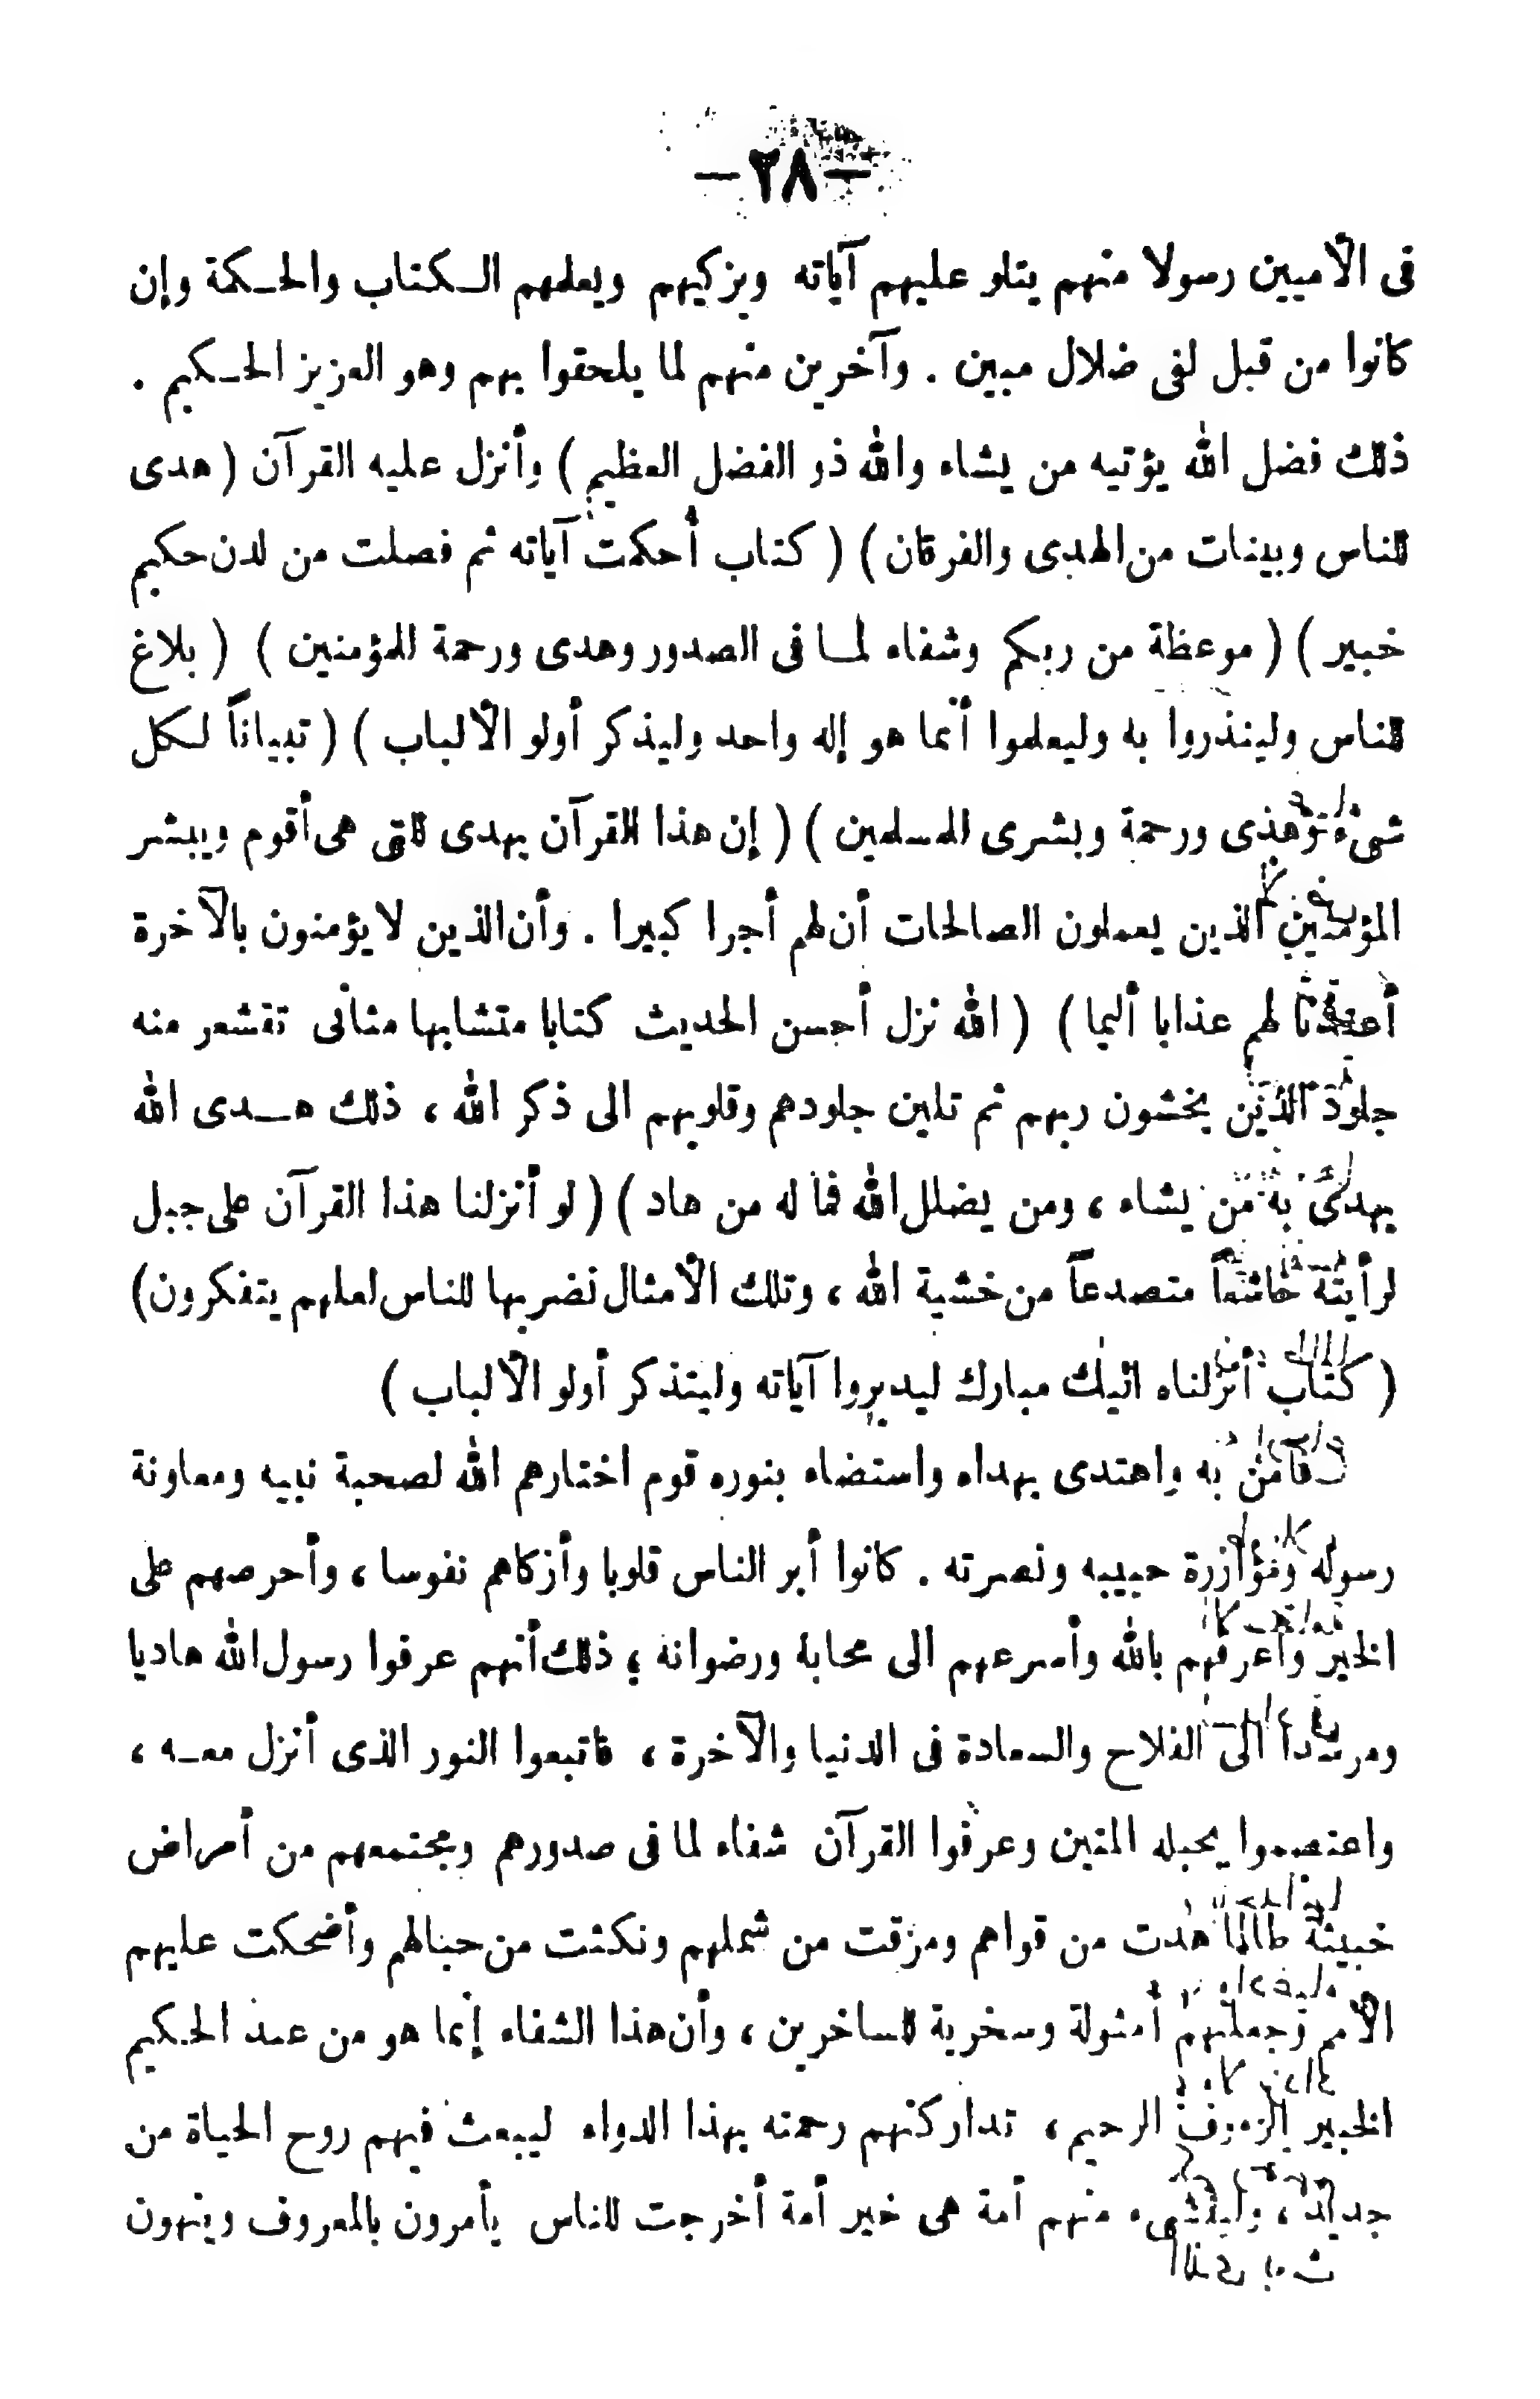 — ٢٨ —
فى الأميين رسولا منهم يتلو عليهم آياته ويزكيهم ويعلمهم الكتاب والحكمة وإن
كانوا من قبل لفى ضلال مبين . وآخرين منهم لما يلحقوا بهم وهو العزيز الحكيم .
ذلك فضل الله يؤتيه من يشاء والله ذو الفضل العظيم ) وأنزل عليه القرآن ( هدى
للناس وبينات من الهدى والفرقان ) ( كتاب أحكمت آياته ثم فصلت من لدن حكيم
خبير ) ( موعظة من ربكم وشفاء لما فى الصدور وهدى ورحمة للمؤمنين ) ( بلاغ
للناس ولينذروا به وليعلموا أنما هو إله واحد وليذكر أولو الألباب ) ( تبياناً لكل
شىء وهدى ورحمة وبشرى للمسلمين ) ( إن هذا القرآن يهدى للتى هى أقوم ويبشر
المؤمنين الذين يعملون الصالحات أن لهم أجرا كبيرا . وأن الذين لا يؤمنون بالآخرة
أعتدنا لهم عذابا أليما ) ( الله نزل أحسن الحديث كتابا متشابها مثانى تقشعر منه
جلود الذين يخشون ربهم ثم تلين جلودهم وقلوبهم الى ذكر الله ، ذلك هدى الله
يهدى به من يشاء ، ومن يضلل الله فما له من هاد ) ( لو أنزلنا هذا القرآن على جبل
لرأيته خاشعاً متصدعاً من خشية الله ، وتلك الأمثال نضربها للناس لعلهم يتفكرون)
( كتاب أنزلناه اليك مبارك ليدبروا آياته وليتذكر أولو الألباب )
فآمن به واهتدى بهداه واستضاء بنوره قوم اختارهم الله لصحبة نبيه ومعاونة
رسوله ومؤازرة حبيبه ونصرته . كانوا أبر الناس قلوبا وأزكاهم نفوسا ، وأحرصهم على
الخير وأعرفهم بالله وأسرعهم الى محابه ورضوانه ؛ ذلك أنهم عرفوا رسول الله هاديا
ومرشدا الى الفلاح والسعادة فى الدنيا والآخرة ، فاتبعوا النور الذى أنزل معه ،
واعتصموا بحبله المتين وعرفوا القرآن شفاء لما فى صدورهم ومجتمعهم من أمراض
خبيثة طالما هدت من قواهم ومزقت من شملهم ونكثت من حبالهم وأضحكت عليهم
الأمم وجعلتهم أمثولة وسخرية للساخرين ، وأن هذا الشفاء إنما هو من عند الحكيم
الخبير الرءوف الرحيم ، تداركتهم رحمته بهذا الدواء ليبعث فيهم روح الحياة من
جديد ، ولينشىء منهم أمة هى خير أمة أخرجت للناس يأمرون بالمعروف وينهون